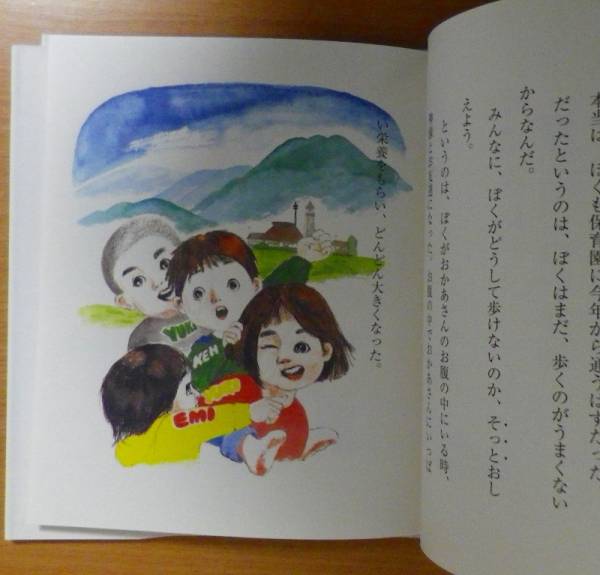 本当は、ぼくも保育園に今年から通うはずだった
だったというのは、ぼくはまだ、歩くのがうまくない
からなんだ。
みんなに、ぼくがどうして歩けないのか、そっとおし
えよう。
というのは、ぼくがおかあさんのお腹の中にいる時、
お腹の中でおかあさんにいっぱ
い栄養をもらい、どんどん大きくなった。
YUKI
KEN
EMI